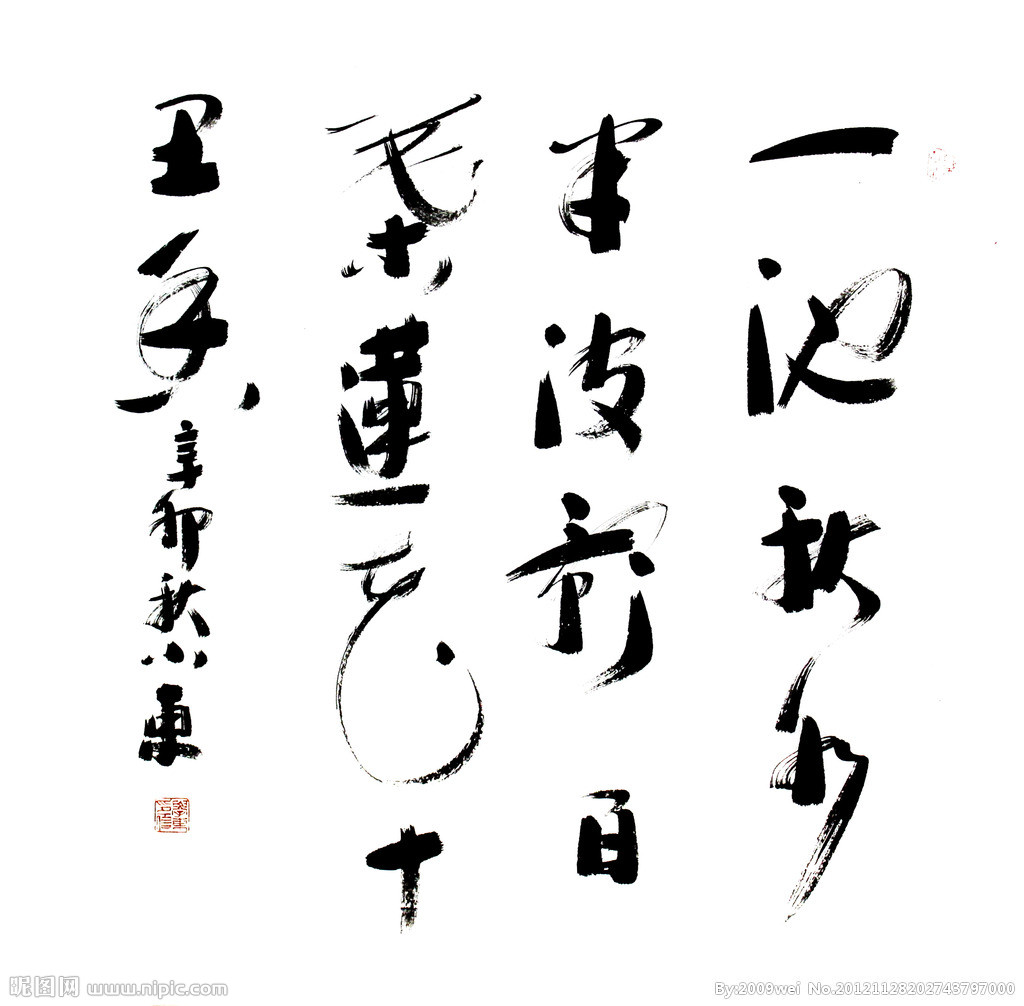 一池秋水
半波影百
叶莲花十
里香辛卯秋小東
昵图网 www.nipic.com
By:2009wei No.20121128202743797000